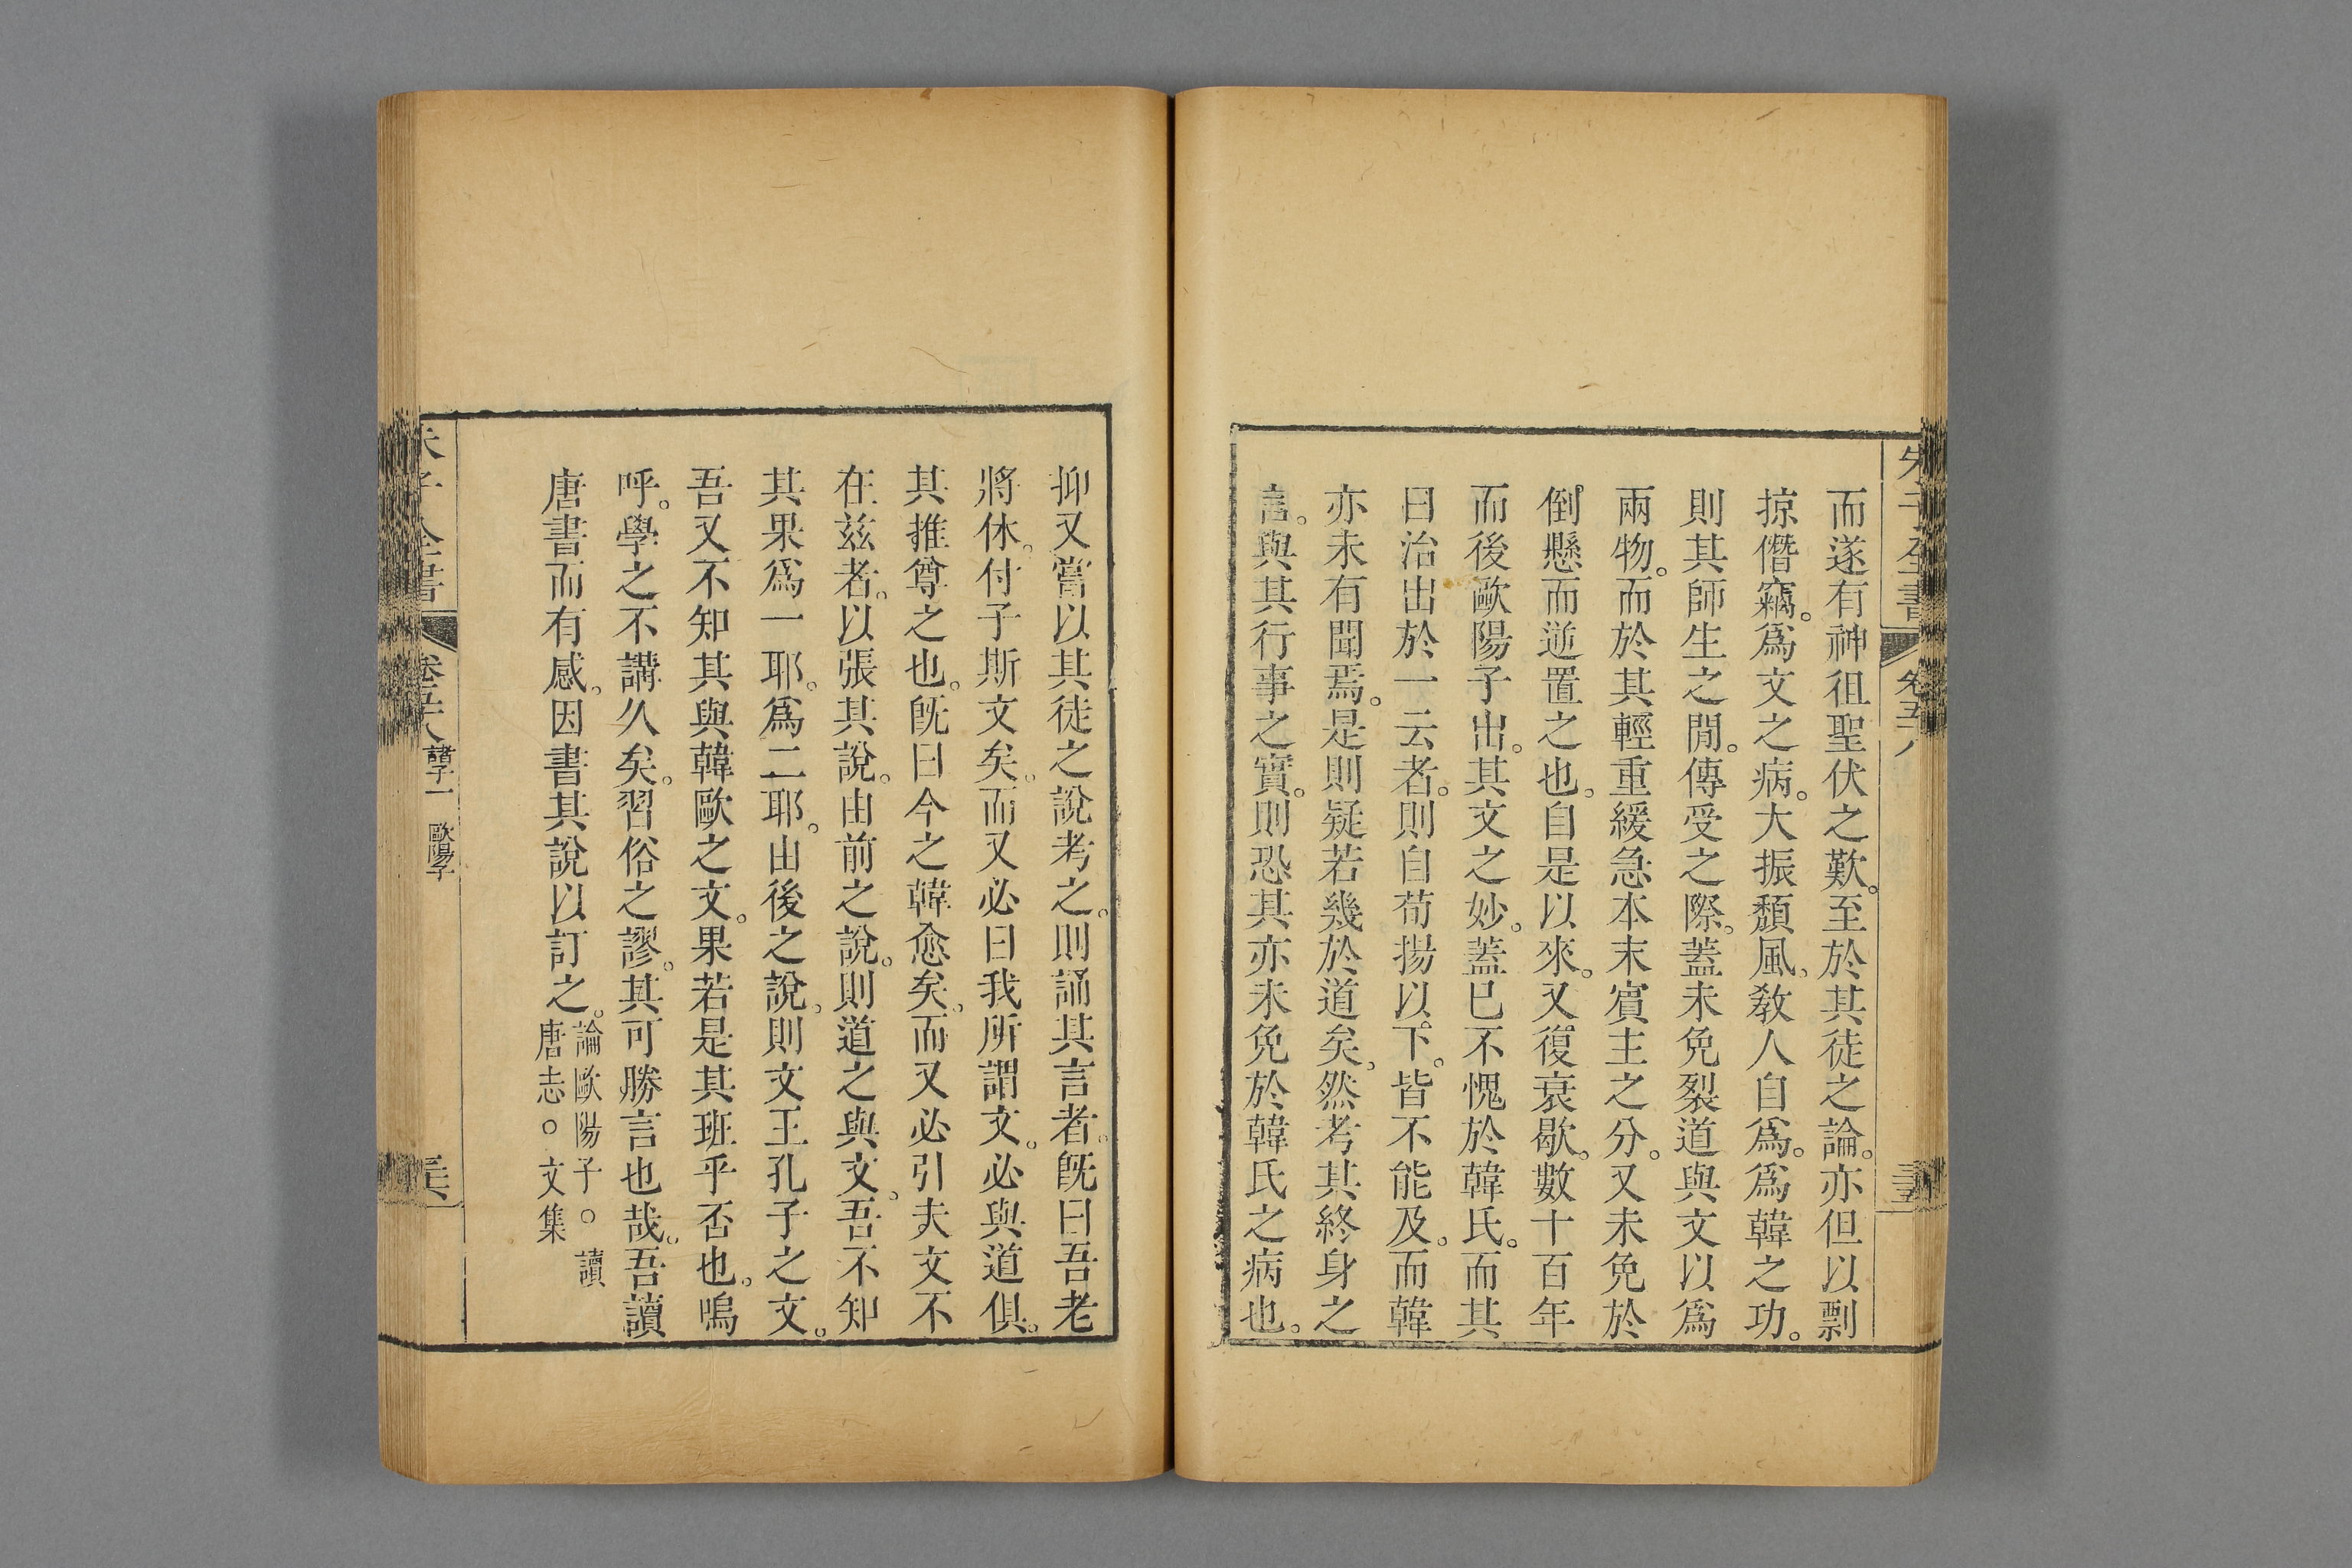 朱子全書
卷五十八
而遂有神徂聖伏之歎。至於其徒之論。亦但以剽
掠僭竊。爲文之病。大振頹風、敎人自爲。爲韓之功。
則其師生之閒。傳受之際。蓋未免裂道與文以爲
兩物。而於其輕重緩急本末賓主之分。又未免於
倒懸而逆置之也。自是以來。又復衰歇。數十百年
而後歐陽子出。其文之妙。蓋已不愧於韓氏。而其
曰治出於一云者。則自荀揚以下。皆不能及。而韓
亦未有聞焉。是則疑若幾於道矣、然考其終身之
言。與其行事之實。則恐其亦未免於韓氏之病也。
抑又嘗以其徒之說考之。則誦其言者。旣曰吾老
將休。付子斯文矣。而又必曰我所謂文。必與道俱。
其推尊之也。旣曰今之韓愈矣、而又必引夫文不
在兹者。以張其說。由前之說。則道之與文、吾不知
其果爲一耶。爲二耶。由後之說、則文王孔子之文。
吾又不知其與韓歐之文。果若是其班乎否也。嗚
呼。學之不講久矣。習俗之謬。其可勝言也哉。吾讀
唐書而有感。因書其說以訂之。論歐陽子。○讀
唐志。○文集
朱子全書
卷五十八
諸子一 歐陽子